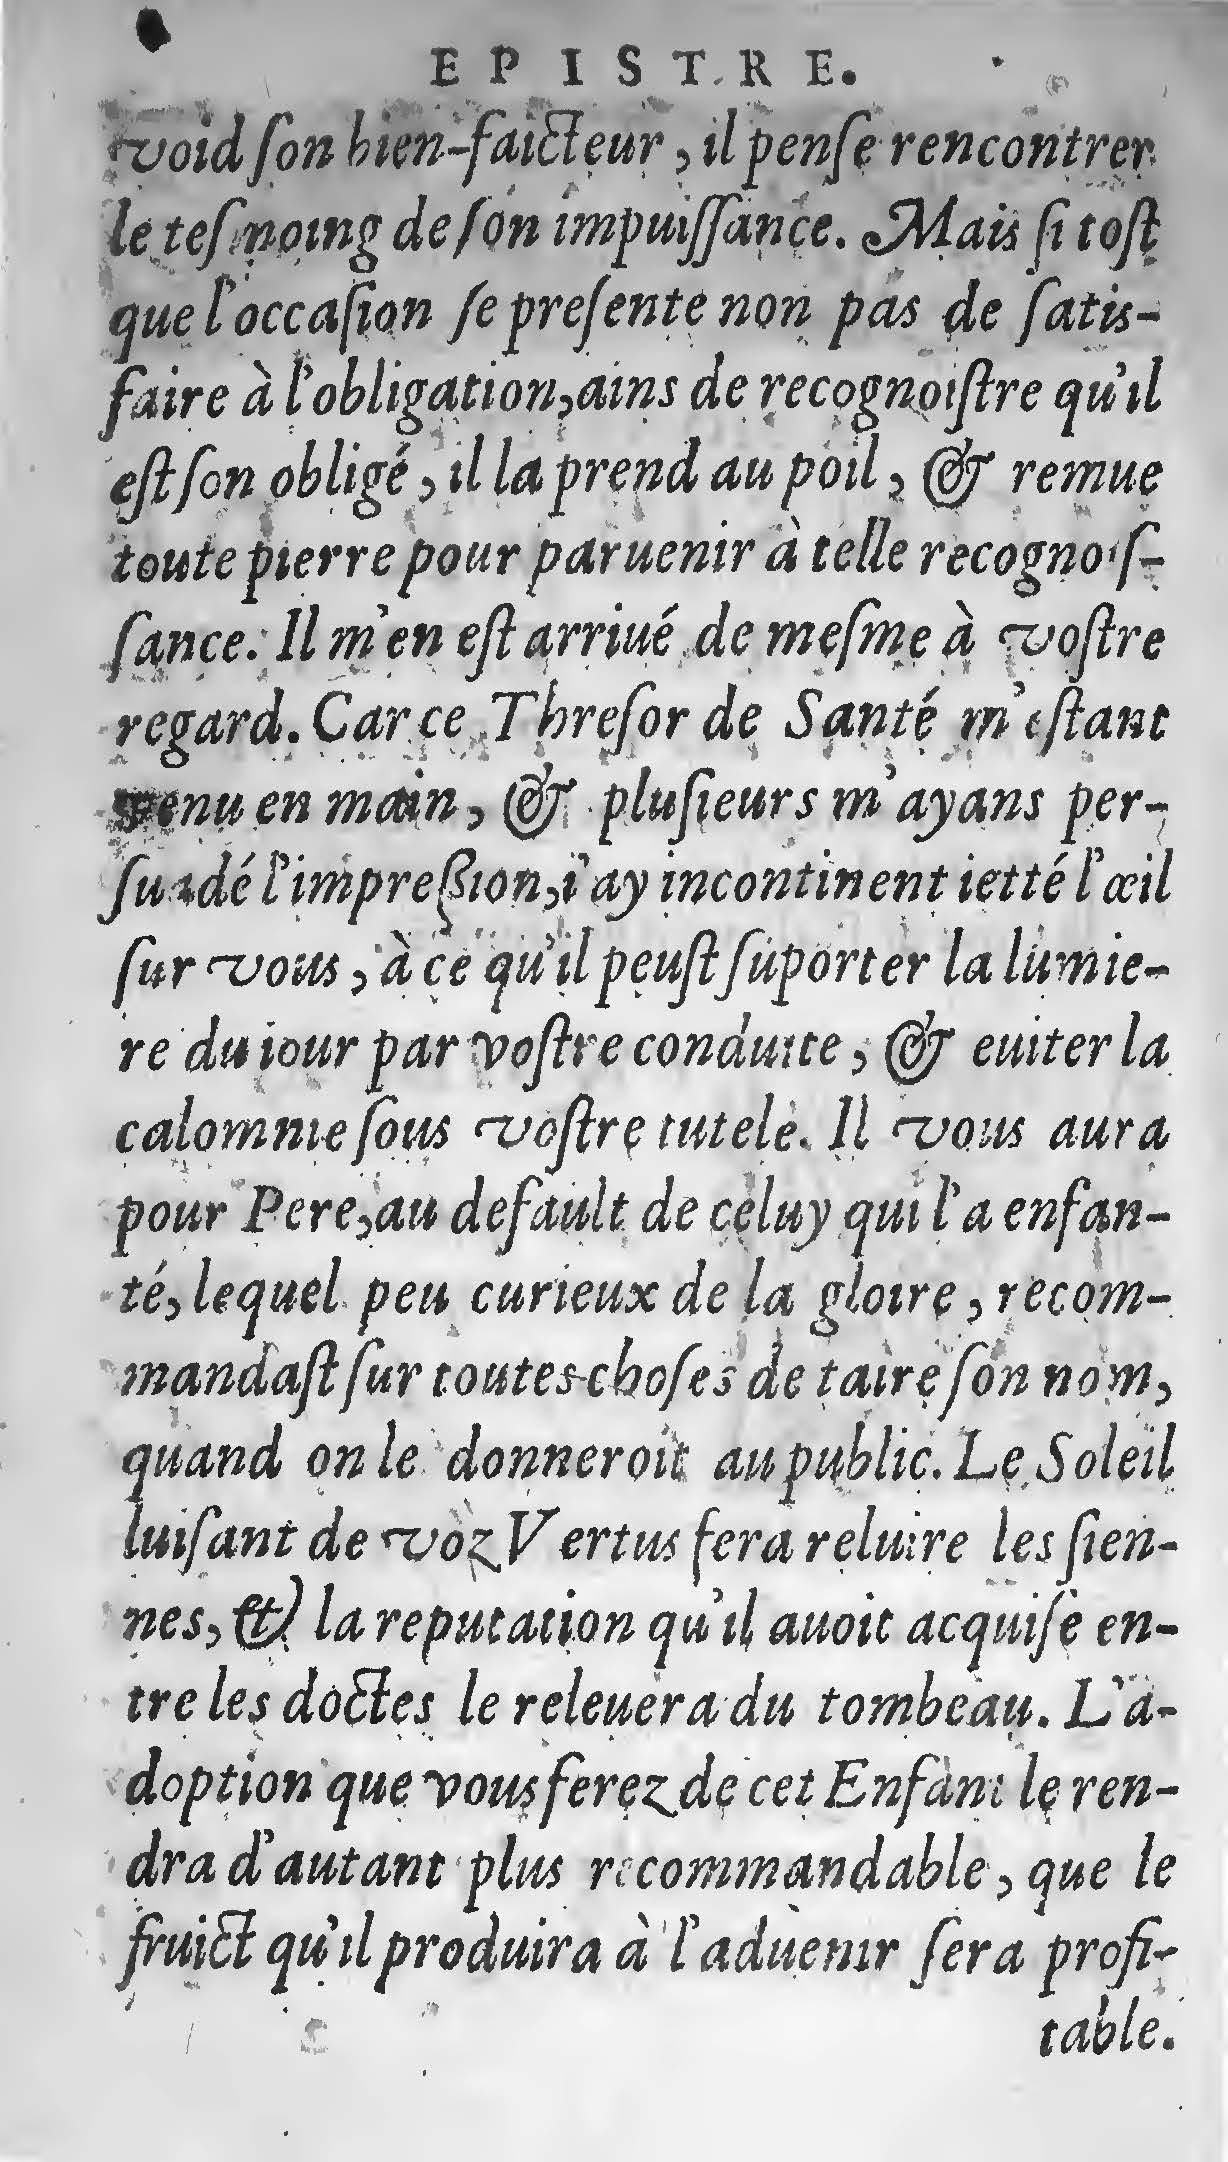 EPISTRE.
void ſon bien-faicteur, il penſe rencontrer
le teſmoing de ſon impuiſſance. Mais ſi toſt
que l'occaſion ſe preſente non pas de ſatis-
faire à l'obligation, ains de recognoiſtre qu'il
eſt ſon obligé, il la prend au poil, & remue
toute pierre pour paruenir à telle recognoiſ-
ſance. Il m'en eſt arriué de meſme à voſtre
regard. Car ce Threſor de Santé m'eſtant
venu en main, & pluſieurs m'ayans per-
ſuadé l'impreßion, i'ay incontinent ietté l'œil
ſur vous, à ce qu'il peuſt ſuporter la lumie-
re du iour par voſtre conduite, & euiter la
calomnie ſous voſtre tutele. Il vous aura
pour Pere, au default de celuy qui l'a enfan-
té, lequel peu curieux de la gloire, recom-
mandaſt ſur toutes choſes de taire ſon nom,
quand on le donneroit au public. Le Soleil
luiſant de voz Vertus fera reluire les ſien-
nes, & la reputation qu'il auoit acquiſe en-
tre les doctes le releuera du tombeau. L'a-
doption que vous ferez de cet Enfant le ren-
dra d'autant plus recommandable, que le
fruict qu'il produira à l'aduenir ſera profi-
table.